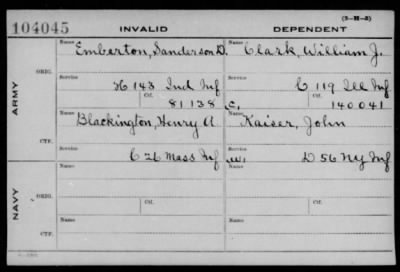 (3-H-3)
104045 INVALID DEPENDENT
ARMY
ORIG.
Name Emberton, Sanderson D. Name Clark, William J.
Service H 143 Ind Inf Service C 119 Ill Inf
Ctf. 81138 C. Ctf. 140041
CTF.
Name Blackington, Henry A Name Kaiser, John
Service C 26 Mass Inf Service D 56 Ny Inf
NAVY
ORIG.
Name Ctf. Name Ctf.
CTF.
Name Name